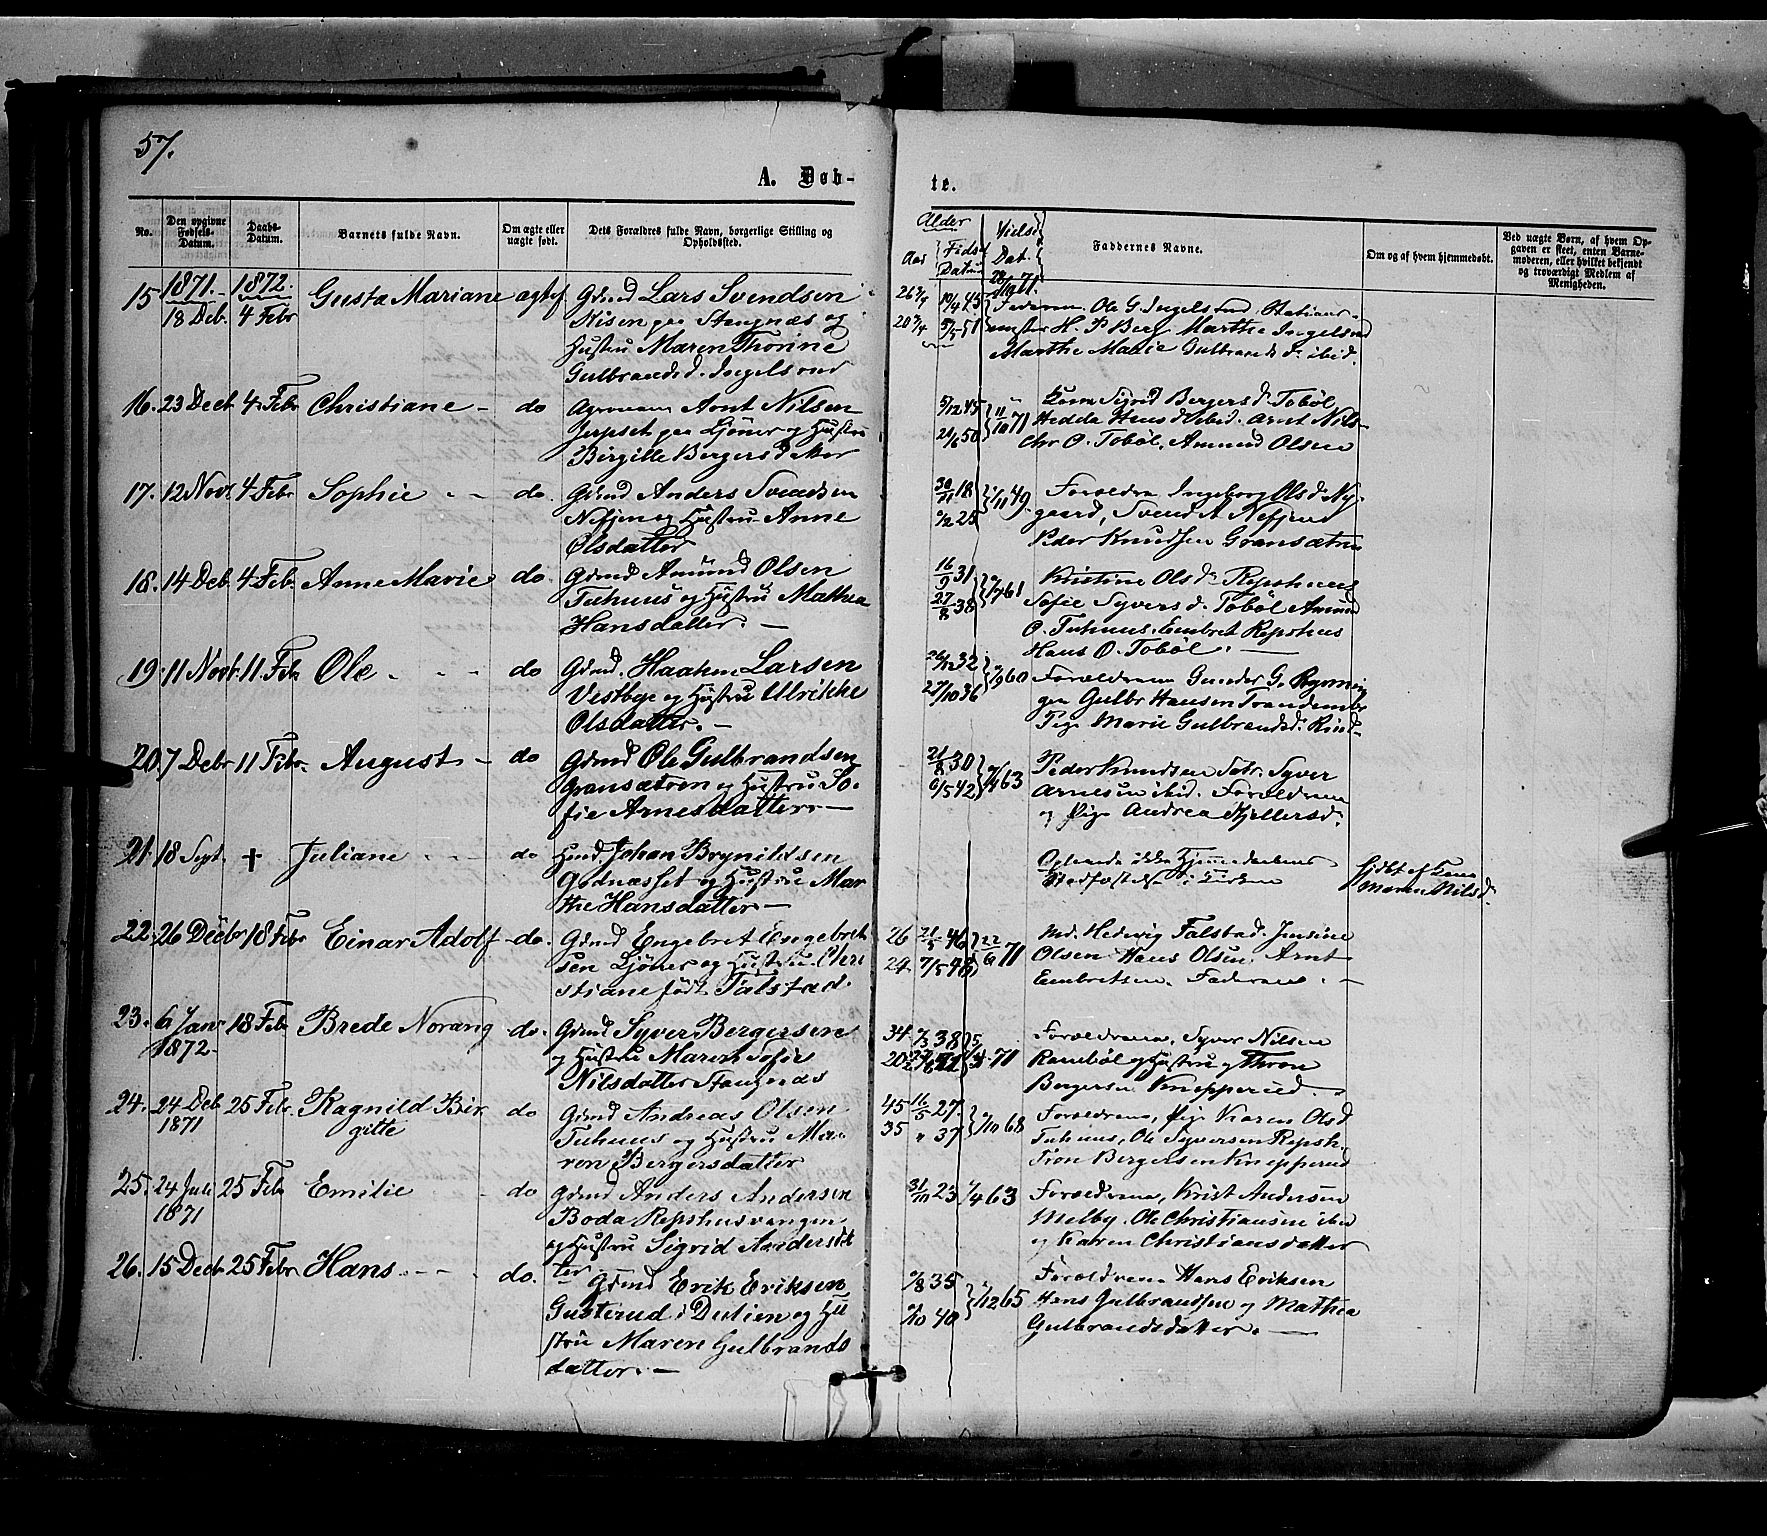 57.
A. Døb-
te.
No.
Den opgivne Fødsels-Datum.
Daabs-Datum.
Barnets fulde Navn.
Om ægte eller uægte født.
Dets Forældres fulde Navn, borgerlige Stilling og Opholdssted.
Alder
Aar
Føds Datum
Vielses Dat.
Faddernes Navne.
Om og af hvem hjemmedøbt.
Ved uægte Børn, af hvem Opgaven er skeet, enten Barnemoderen, eller hvilket bekjendt og troværdigt Medlem af Menigheden.
15 1871. 18 Deb. 1872. 4 Febr Gusta Mariane ægtef. Gdmd Lars Svendsen
Nisen paa Stangnæs og
Hustru Maren Thorine
Gulbrandsd. Ingelsrud
Faderen Ole G. Ingelsrud Stations-
mester H. P Berg Marthe Ingelsrud
Marthe Marie Gulbrandsd. ibid.
16. 23 Decb 4 Febr Christiane - do Arnt Nilsen
paa Ljöner og Hustru
Birgitte Bergersdatter
5/12 45 11/10 71
Kone Sigrid Bergersd. Toböl
Hedda Hansd. ibid. Arnt Nils-
Chr O. Toböl, Amund Olsen
17. 12 Novb 4 Febr Sophie - - do. Gdmd Anders Svendsen
Nefjen og Hustru Anne
Olsdatter
30/11 18 49
Forældre Ingeborg Olsd. Ny-
gaard, Svend A Nefjen
Peder Knudsen Gransætren
18. 14 Deb. 4 Feb. Anne Marie do. Gdmd Amund Olsen
Tuhuus og Hustru Mathea
Hansdatter. -
16/9 31 61
27/8 38
Kristine Olsd. Repshuus
Sofie Syversd. Toböl Amund
O. Tuhuus. Embret Repshus
Hans O. Toböl. -
19. 11 Novb. 11 Feb Ole - - - do Gdmd. Haaken Larsen
Vestbye og Hustru Ulrikke
Olsdatter. -
32 60
27/10 36
Forældrene Gunder G.
Gulbr Hansen
Pige Marie Gulbrandsd.
20. 7 Debr 11 Febr. August - do Gdmd Ole Gulbrandsen
Gransætren og Hustru So-
fie Arnesdatter. -
21/8 30 63
6/5 42
Peder Knudsen Sætr. Syver
Arnesen ibid. Forældrene
og Pige Andrea Kjellersd.
21. 18 Sept. † Juliane - - do Johan Brynildsen
Godnæsset og Hustru Mar
the Hansdatter -
ikke Hjemmedaabens
Stadfæstelse i Kirken
Nilsd.
22. 26 Decbr 18 Febr Einar Adolf - do. Gdmd Engebret Engebret-
sen Ljöner og Hustru Chri
stiane født Falstad.
26 21/5 46 22/6 71
24 7/5 48
Md. Hedwig Falstad. Jensine
Olsen. Hans Olsen. Arnt
Embretsen. Faderen. -
23. 6 Janr 1872. 18 Feb Brede Norang do. Gdmd Syver Bergersen
og Hustru Maren Sofie
Nilsdatter Stangnæs
34 38 71
20
Forældrene, Syver Nilsen
Ramböl og Hustru og Thron
Bergersen Knapperud. -
24. 24 Deb 1871 25 Feb. Ragnild Bir
gitte do Gdmd Andreas Olsen
Tuhuus og Hustru Ma-
ren Bergersdatter
45 16/5 27. 68
35 " 37
Forældrene, Pige Karen Olsd
Tuhuus, Ole Syversen Repsh.
Tron Bergersen Knapperud
25. 24 Juli 1871 25 Feb Emilie - do Gdmd Anders Andersen
Boda Repshusvangen
og Hustru Sigrid Andersdt
ter
31/10 23 63
Forældrene, Krist Andersen
Melby. Ole Christiansen ibid
og Karen Christiansdatter
26. 15 Decb 25 Febr Hans - - - do. Gdmd Erik Eriksen
Gusterud i Dulien og Hu
stru Maren Gulbrands
datter. -
35 65
40
Forældrene Hans Eriksen
Hans Gulbrandsen og Mathea
Gulbrandsdatter. -